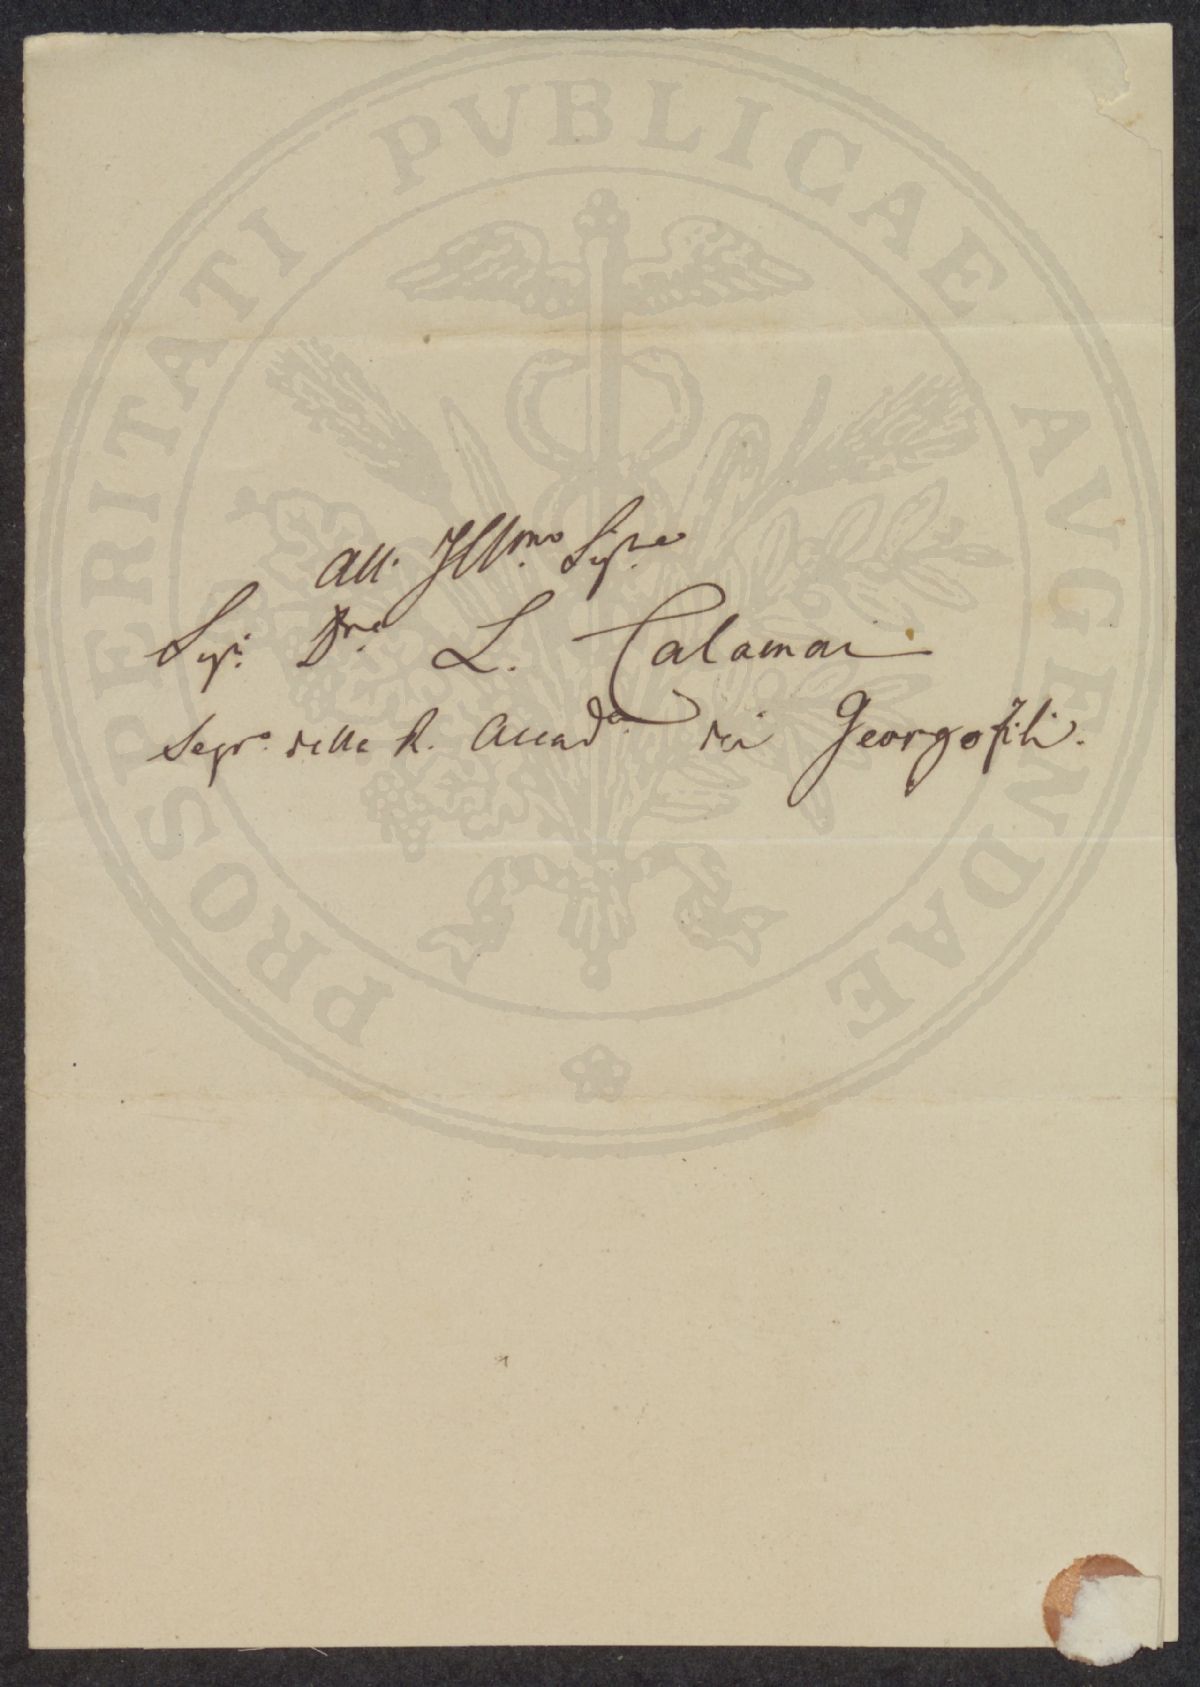 PROSPERITATI PVBLICAE AVGENDAE
All. Illmo. Sigre
Sigr. Dre. L. Calamai
Segro. della R. Accada. dei Georgofili.